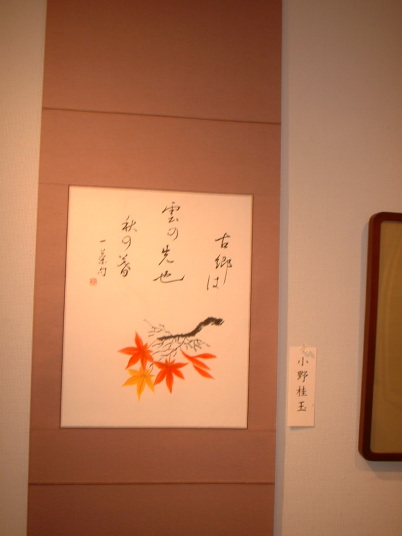 古郷は
雲の先也
秋の暮
一茶句
小野桂玉